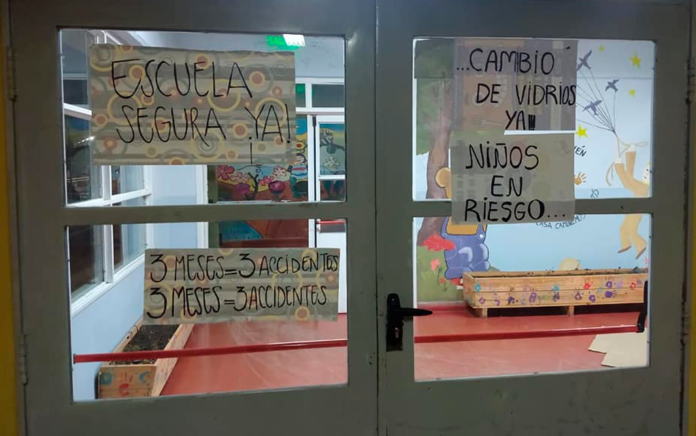 ESCUELA
SEGURA YA!
3 MESES = 3 ACCIDENTES
3 MESES = 3 ACCIDENTES
...CAMBIO
DE VIDRIOS
YA!!!
NIÑOS
EN
RIESGO...